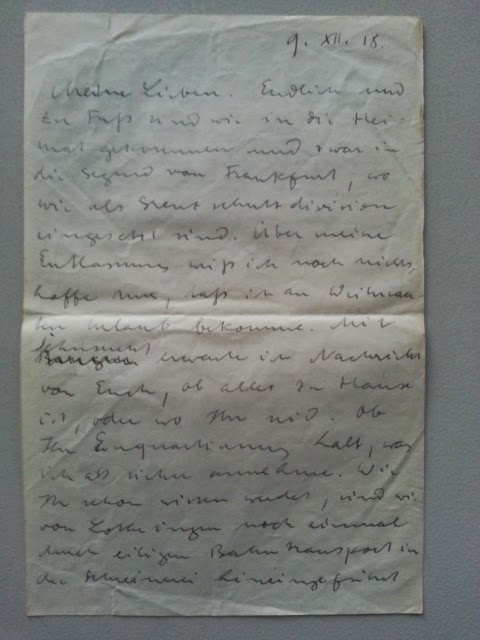 9. XII. 18.
Meine Lieben. Endlich und
zu Fuß sind wir in die Hei-
mat gekommen und zwar in
die Gegend von Frankfurt, wo
wir als Grenzschutzdivision
eingesetzt sind. Über meine
Entlassung weiß ich noch nichts,
hoffe nur, daß ich an Weihnach
ten Urlaub bekomme. Mit
Sehnsucht
erwarte ich Nachricht
von Euch, ob alles zu Hause
ist, oder wo Ihr seid. Ob
Ihr Einquartierung habt, was
ich als sicher annehme. Wie
Ihr schon wissen werdet, sind wir
von Lothringen noch einmal
durch eiligen Bahntransport in
die hineingeführt